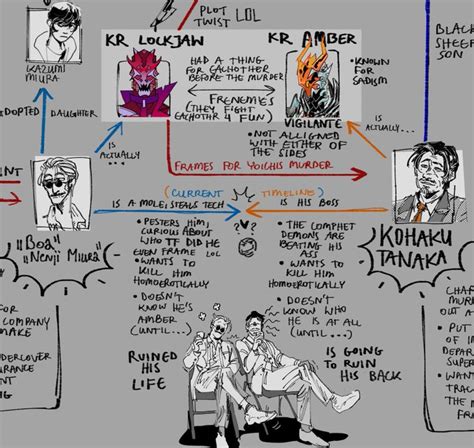 PLOT
TWIST
LOL
KR LOCKJAW
KR AMBER
HAD A THING
FOR EACHOTHER
BEFORE THE MURDER
FRENEMIES
(THEY FIGHT
EACHOTHR 4 FUN)
VIGILANTE
• KNOWN
FOR
SADISM
• NOT ALIGNED
WITH EITHER OF
THE SIDES
BLACK
SHEEP
SON
KAZUMI
MIURA
ADOPTED DAUGHTER
IS
ACTUALLY...
IS
ACTUALLY...
FRAMES FOR YOICHIS MURDER
(CURRENT TIMELINE)
IS A MOLE, STEALS TECH
IS HIS BOSS
"BOA"
NENJI MIURA
KOHAKU
TANAKA
• PESTERS HIM,
CURIOUS ABOUT
WHO TF DID HE
EVEN FRAME LOL
• WANTS TO
KILL HIM
HOMOEROTICALLY
• DOESN'T
KNOW HE'S
AMBER
(UNTIL...)
• THE COMPHET
DEMONS ARE
BEATING HIS
ASS
• WANTS TO
KILL HIM
HOMOEROTICALLY
• DOESN'T
KNOW WHO
HE IS AT ALL
(UNTIL...)
RUINED HIS
LIFE
IS GOING
TO RUIN
HIS BACK
FOR
COMPANY
MAKE
UNDERCOVER
ING
MUR
OUT A
• PUT
OF I
DEPAR
SUPER
• WANT
TRAC
THE M
FRAM